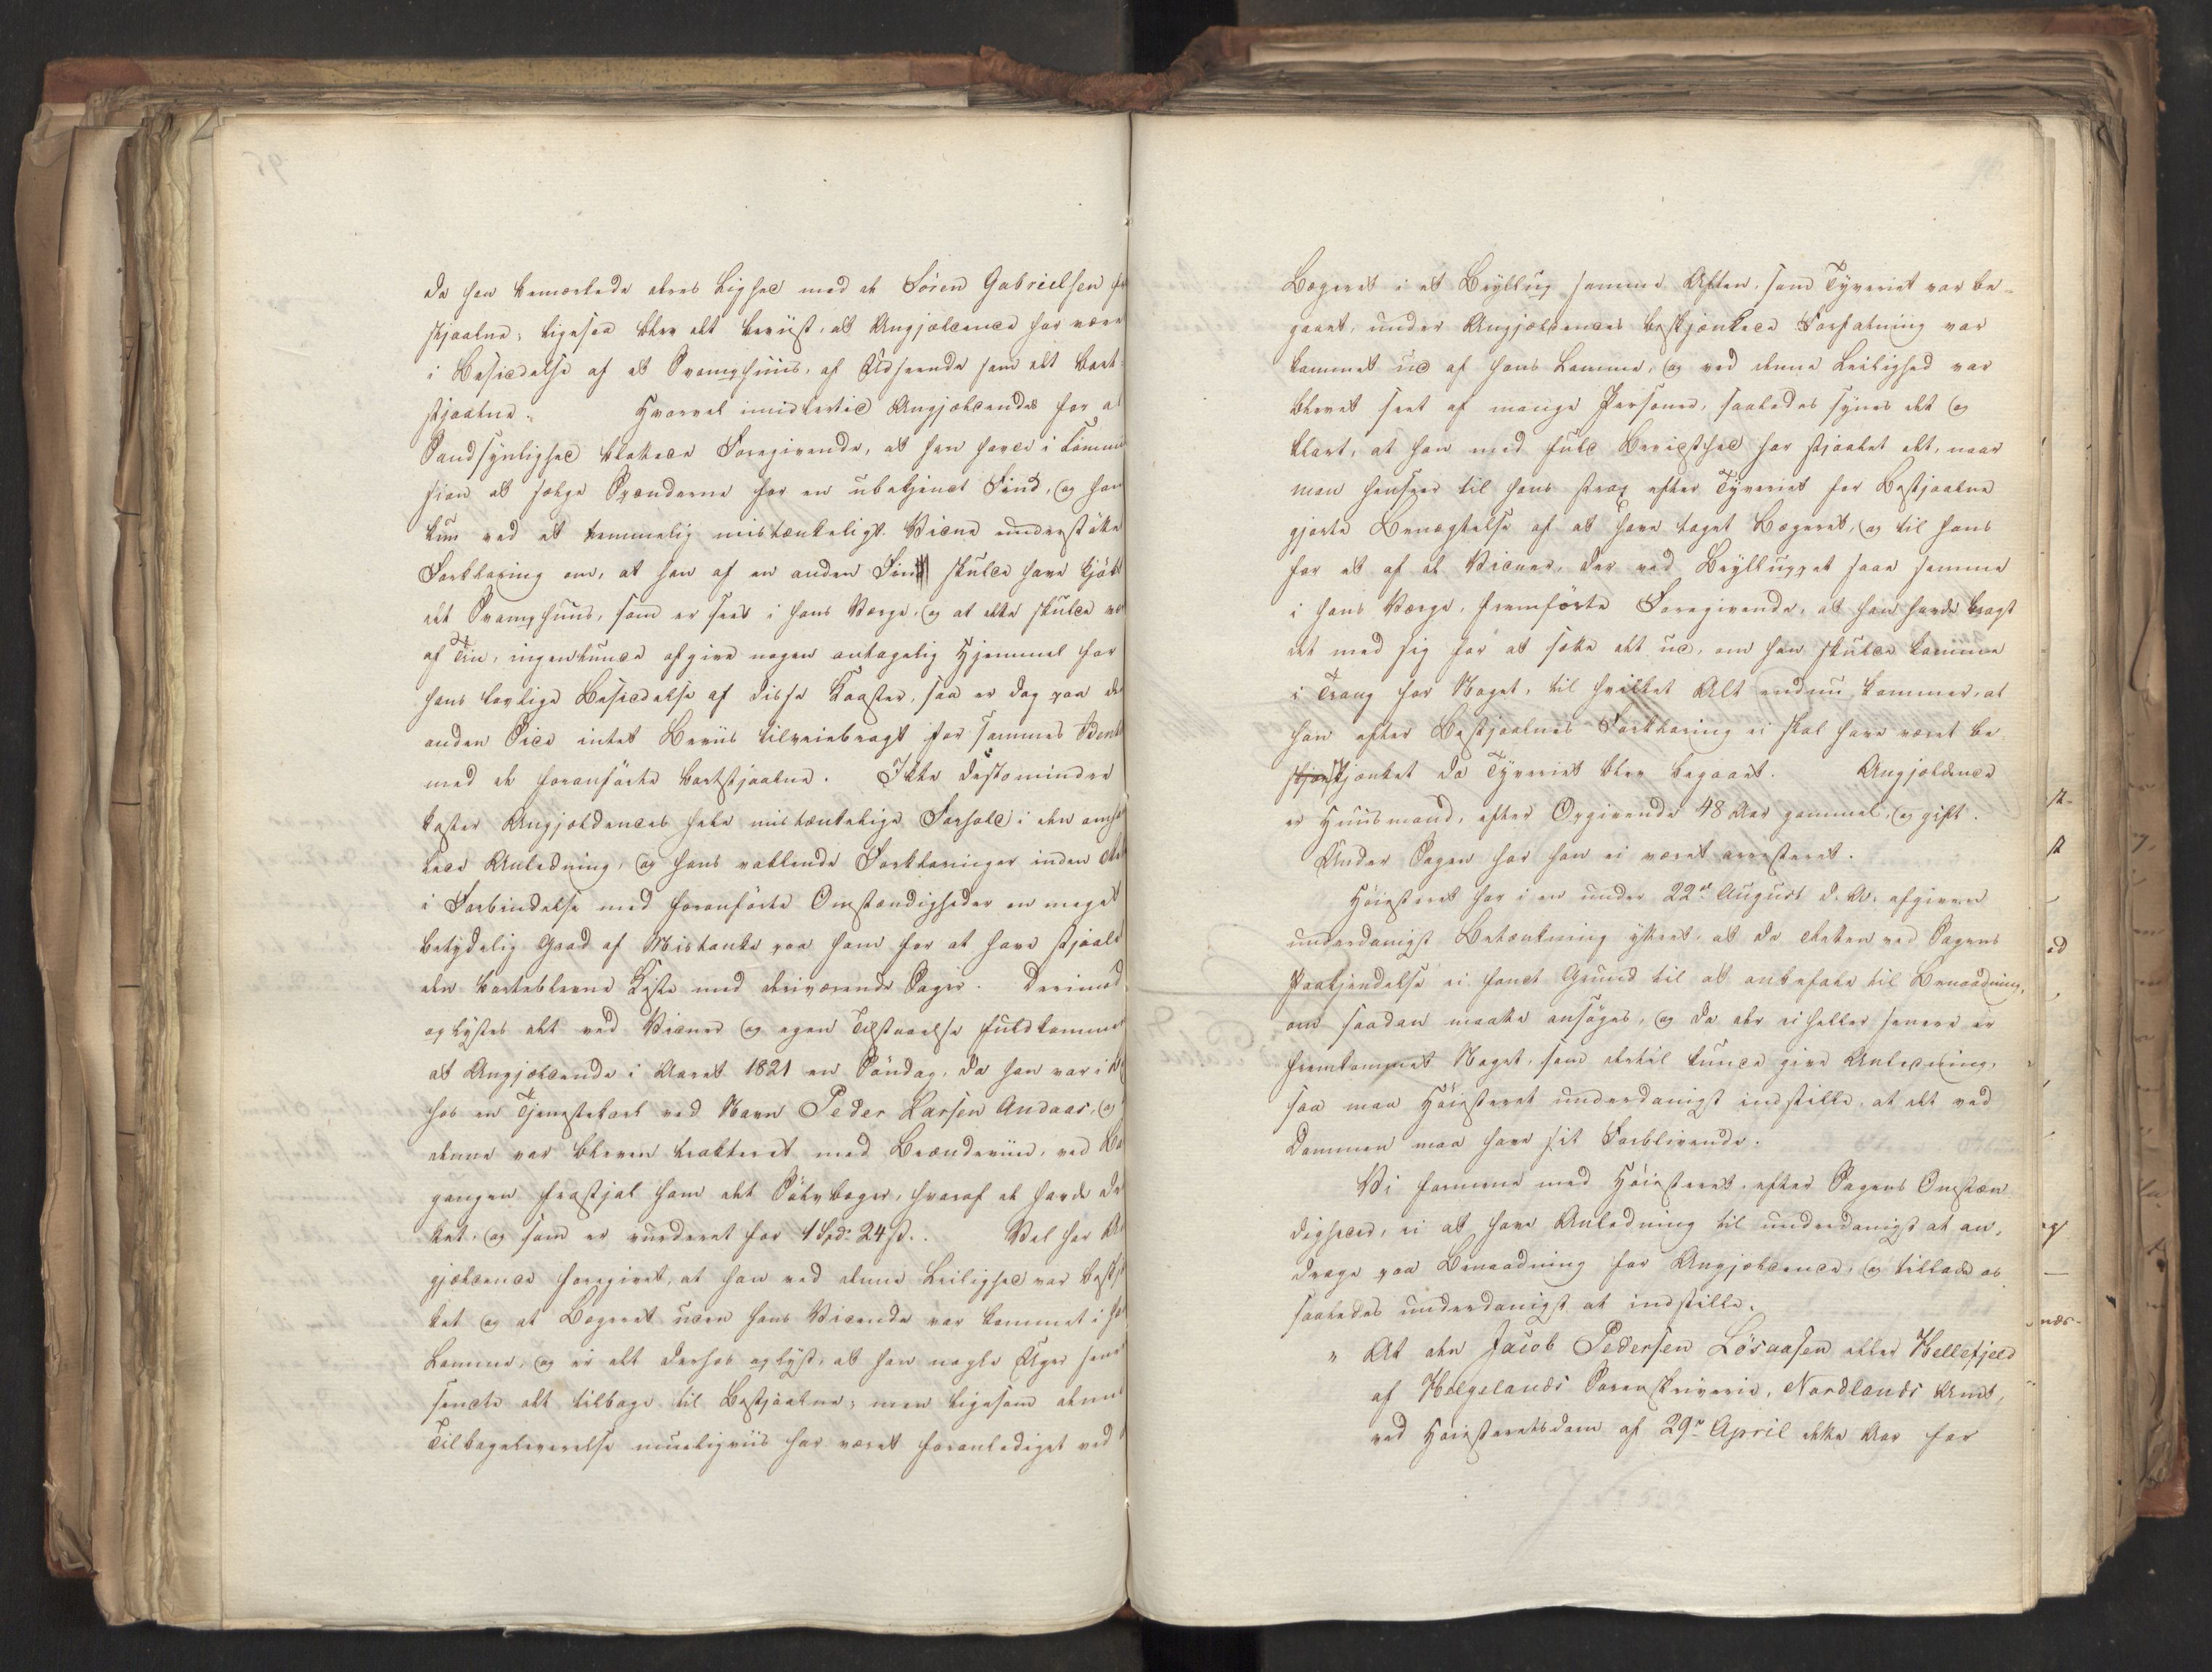 da han bemærkede deres Lighed med de Søren Gabrielsen fra
stjaalne; ligesaa blev det beviist, at Angjældende har være
i Besiddelse af et Svamphuus, af Udseende som det bort-
stjaalne. Hvorvel imidlertid Angjældendes for al
Sandsynlighed blottede Foregivende, at han havde i Commis
sion at sælge Spænderne for en ubekjendt Find, og han
kun ved et temmelig mistænkeligt Vidne understøtte
Forklaring om, at han af en anden Find skulde have kjøbt
det Svamphuus, som er seet i hans Værge, og at dette skulde være
af Tin, ingenlunde afgive nogen antagelig Hjemmel for
hans lovlige Besiddelse af disse Koster, saa er dog paa den
anden Side intet Beviis tilveiebragt for sammes Ident
med de foranførte bortstjaalne. Ikke destomindre
kaster Angjældendes hele mistænkelige Forhold i den omhand
lede Anledning, og hans vaklende Forklaringer inden Ret
i Forbindelse med foranførte Omstændigheder en meget
betydelig Grad af Mistanke paa ham for at have stjaalet
den bortblevne Kiste med deriværende Sager. Derimod
oplystes det ved Vidner og egen Tilstaaelse fuldkommen
at Angjældende i Aaret 1821 en Søndag, da han var i B
hos en Tjenestekarl ved Navn Peder Larsen Andaas, og
denne var bleven trakteret med Brændeviin, ved Bo
gangen frastjal ham det Sølvbæger, hvoraf de havde druk
ket, og som er vurderet for 1 Spd: 24 ß. Vel har An
gjældende foregivet, at han ved denne Leilighed var beskjæn
ket og at Bægeret uden hans Vidende var kommet i hans
Lomme, og er det derhos oplyst, at han nogle Uger sene
sendte det tilbage til Bestjaalne; men ligesom denne
Tilbageleverelse mueligviis har været foranlediget ved
Bægeret i et Bryllup samme Aften, som Tyveriet var be-
gaaet, under Angjældendes beskjænkede Forfatning var
kommet ud af hans Lomme, og ved denne Leilighed var
blevet seet af mange Personer, saaledes synes det og
klart, at han med fuld Bevidsthed har stjaalet det, naar
man henseer til hans strax efter Tyveriet for Bestjaalne
gjorte Benægtelse af at have taget Bægeret, og til hans
for et af de Vidner, der ved Bryllupet saae samme
i hans Værge, fremførte Foregivende, at han havde bragt
det med sig for at søke det ud, om han skulde komme
i Trang for Noget, til hvilket Alt endnu kommer, at
han efter Bestjaalnes Forklaring ei skal have været be
skjænket da Tyveriet blev begaaet. Angjældende
er Huusmand, efter Opgivende 48 Aar gammel, og gift.
Under Sagen har han ei været arresteret.
Høiesteret har i en under 22de August d. A. afgiven
underdanigst Betænkning yttret, at da Retten ved Sagens
Paakjendelse ei fandt Grund til at anbefale til Benaadning,
om saadan maatte ansøges, og da der ei heller senere er
fremkommet Noget, som dertil kunde give Anledning,
saa maa Høiesteret underdanigst indstille, at det ved
Dommen maa have sit Forblivende.
Vi formene med Høiesteret, efter Sagens Omstæn
digheder, ei at have Anledning til underdanigst at an,
drage paa Benaadning for Angjældende, og tillade os
saaledes underdanigst at indstille,
" At den Jacob Pedersen Løsaasen eller Hellefjeld
af Helgelands Sorenskriverie, Nordlands Amt,
ved Høiesteretsdom af 29de April dette Aar for